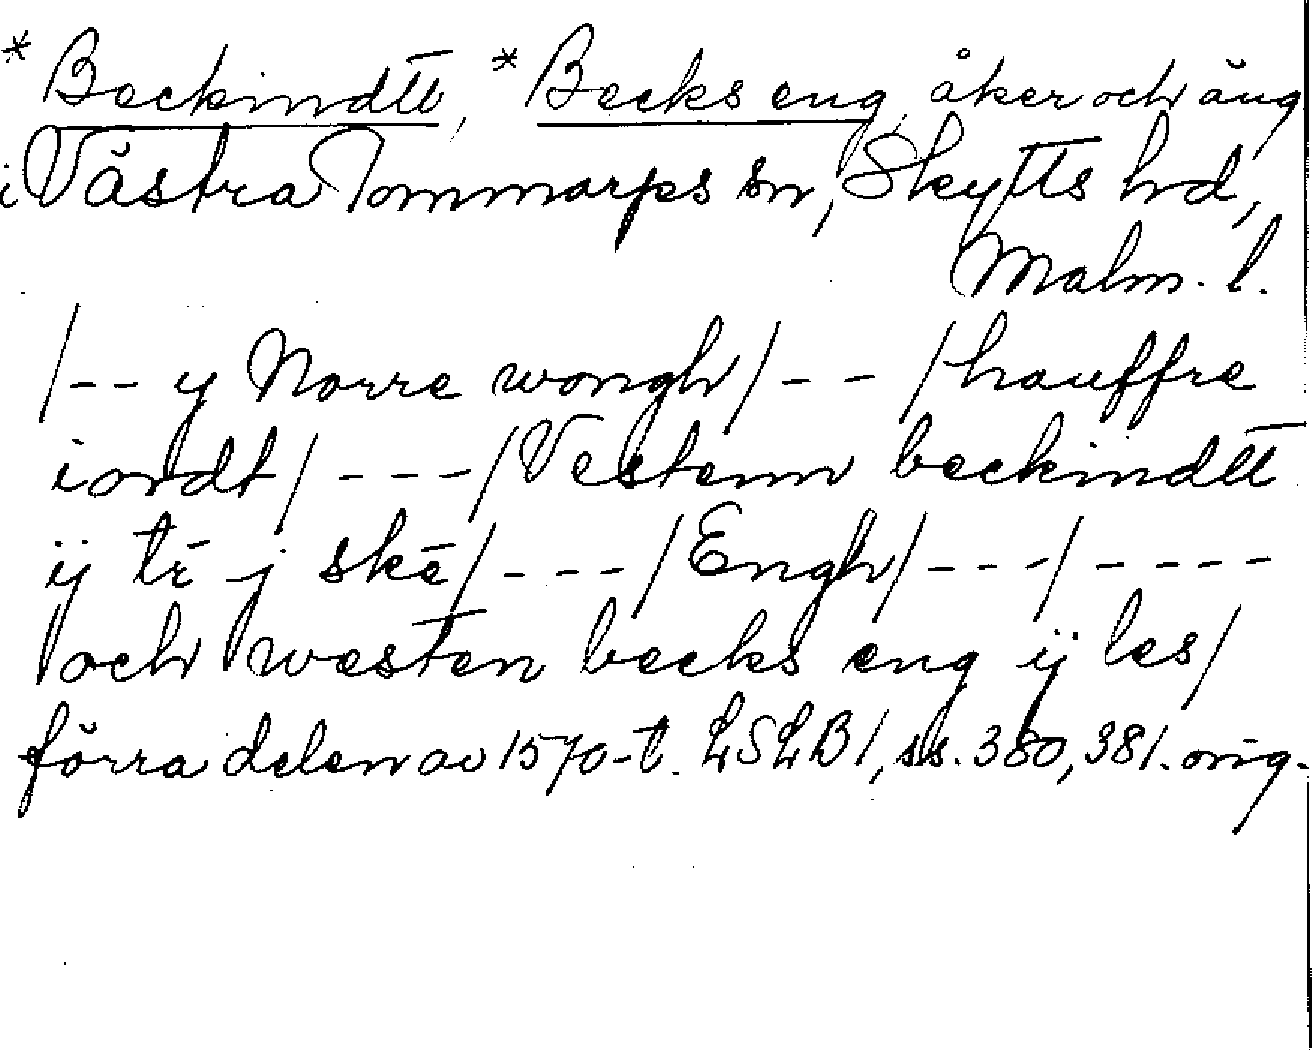 *Beckindtt, *Becks eng, åker och äng
i Västra Tommarps sn, Skytts hd,
Malm. l.
/-- y Norre wongh/-- /hauffre
iordt/---/Vestenn beckindtt
ÿ tē j skē/---/Engh/---/----
och westen becks eng ÿ les/
förra delen av 1570-t. LSLB 1, ss. 380, 381. orig.